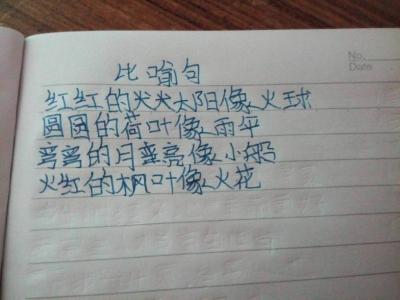 No.
Date
比喻句
红红的太阳像火球
圆圆的荷叶像雨伞
弯弯的月亮像小船
火红的枫叶像火花